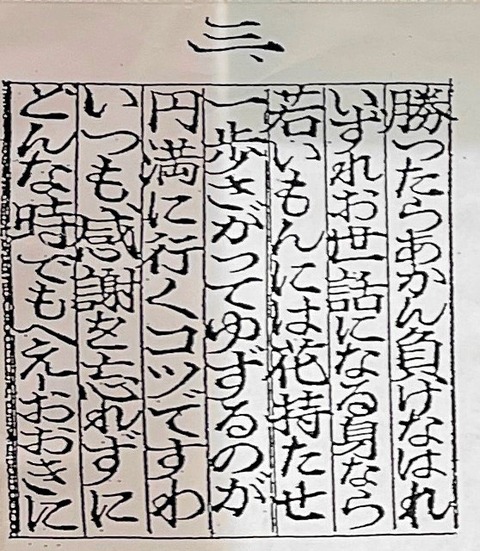 三、
勝ったらあかん負けなはれ
いずれお世話になる身なら
若いもんには花持たせ
一歩さがってゆずるのが
円満に行くコツですわ
いつも、感謝を忘れずに
どんな時でもへえーおおきに